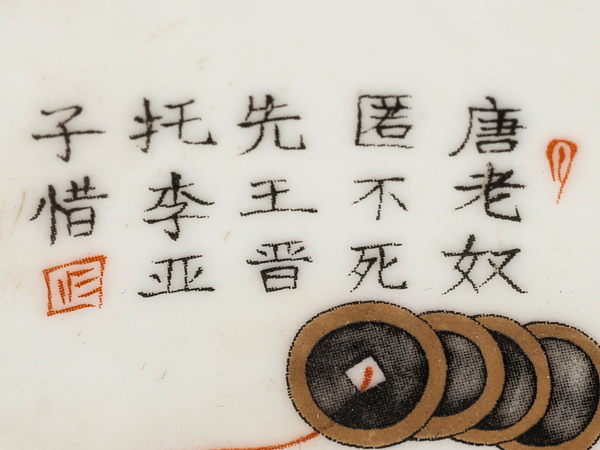 唐老奴
匿不死
先王晋
托李亚
子惜